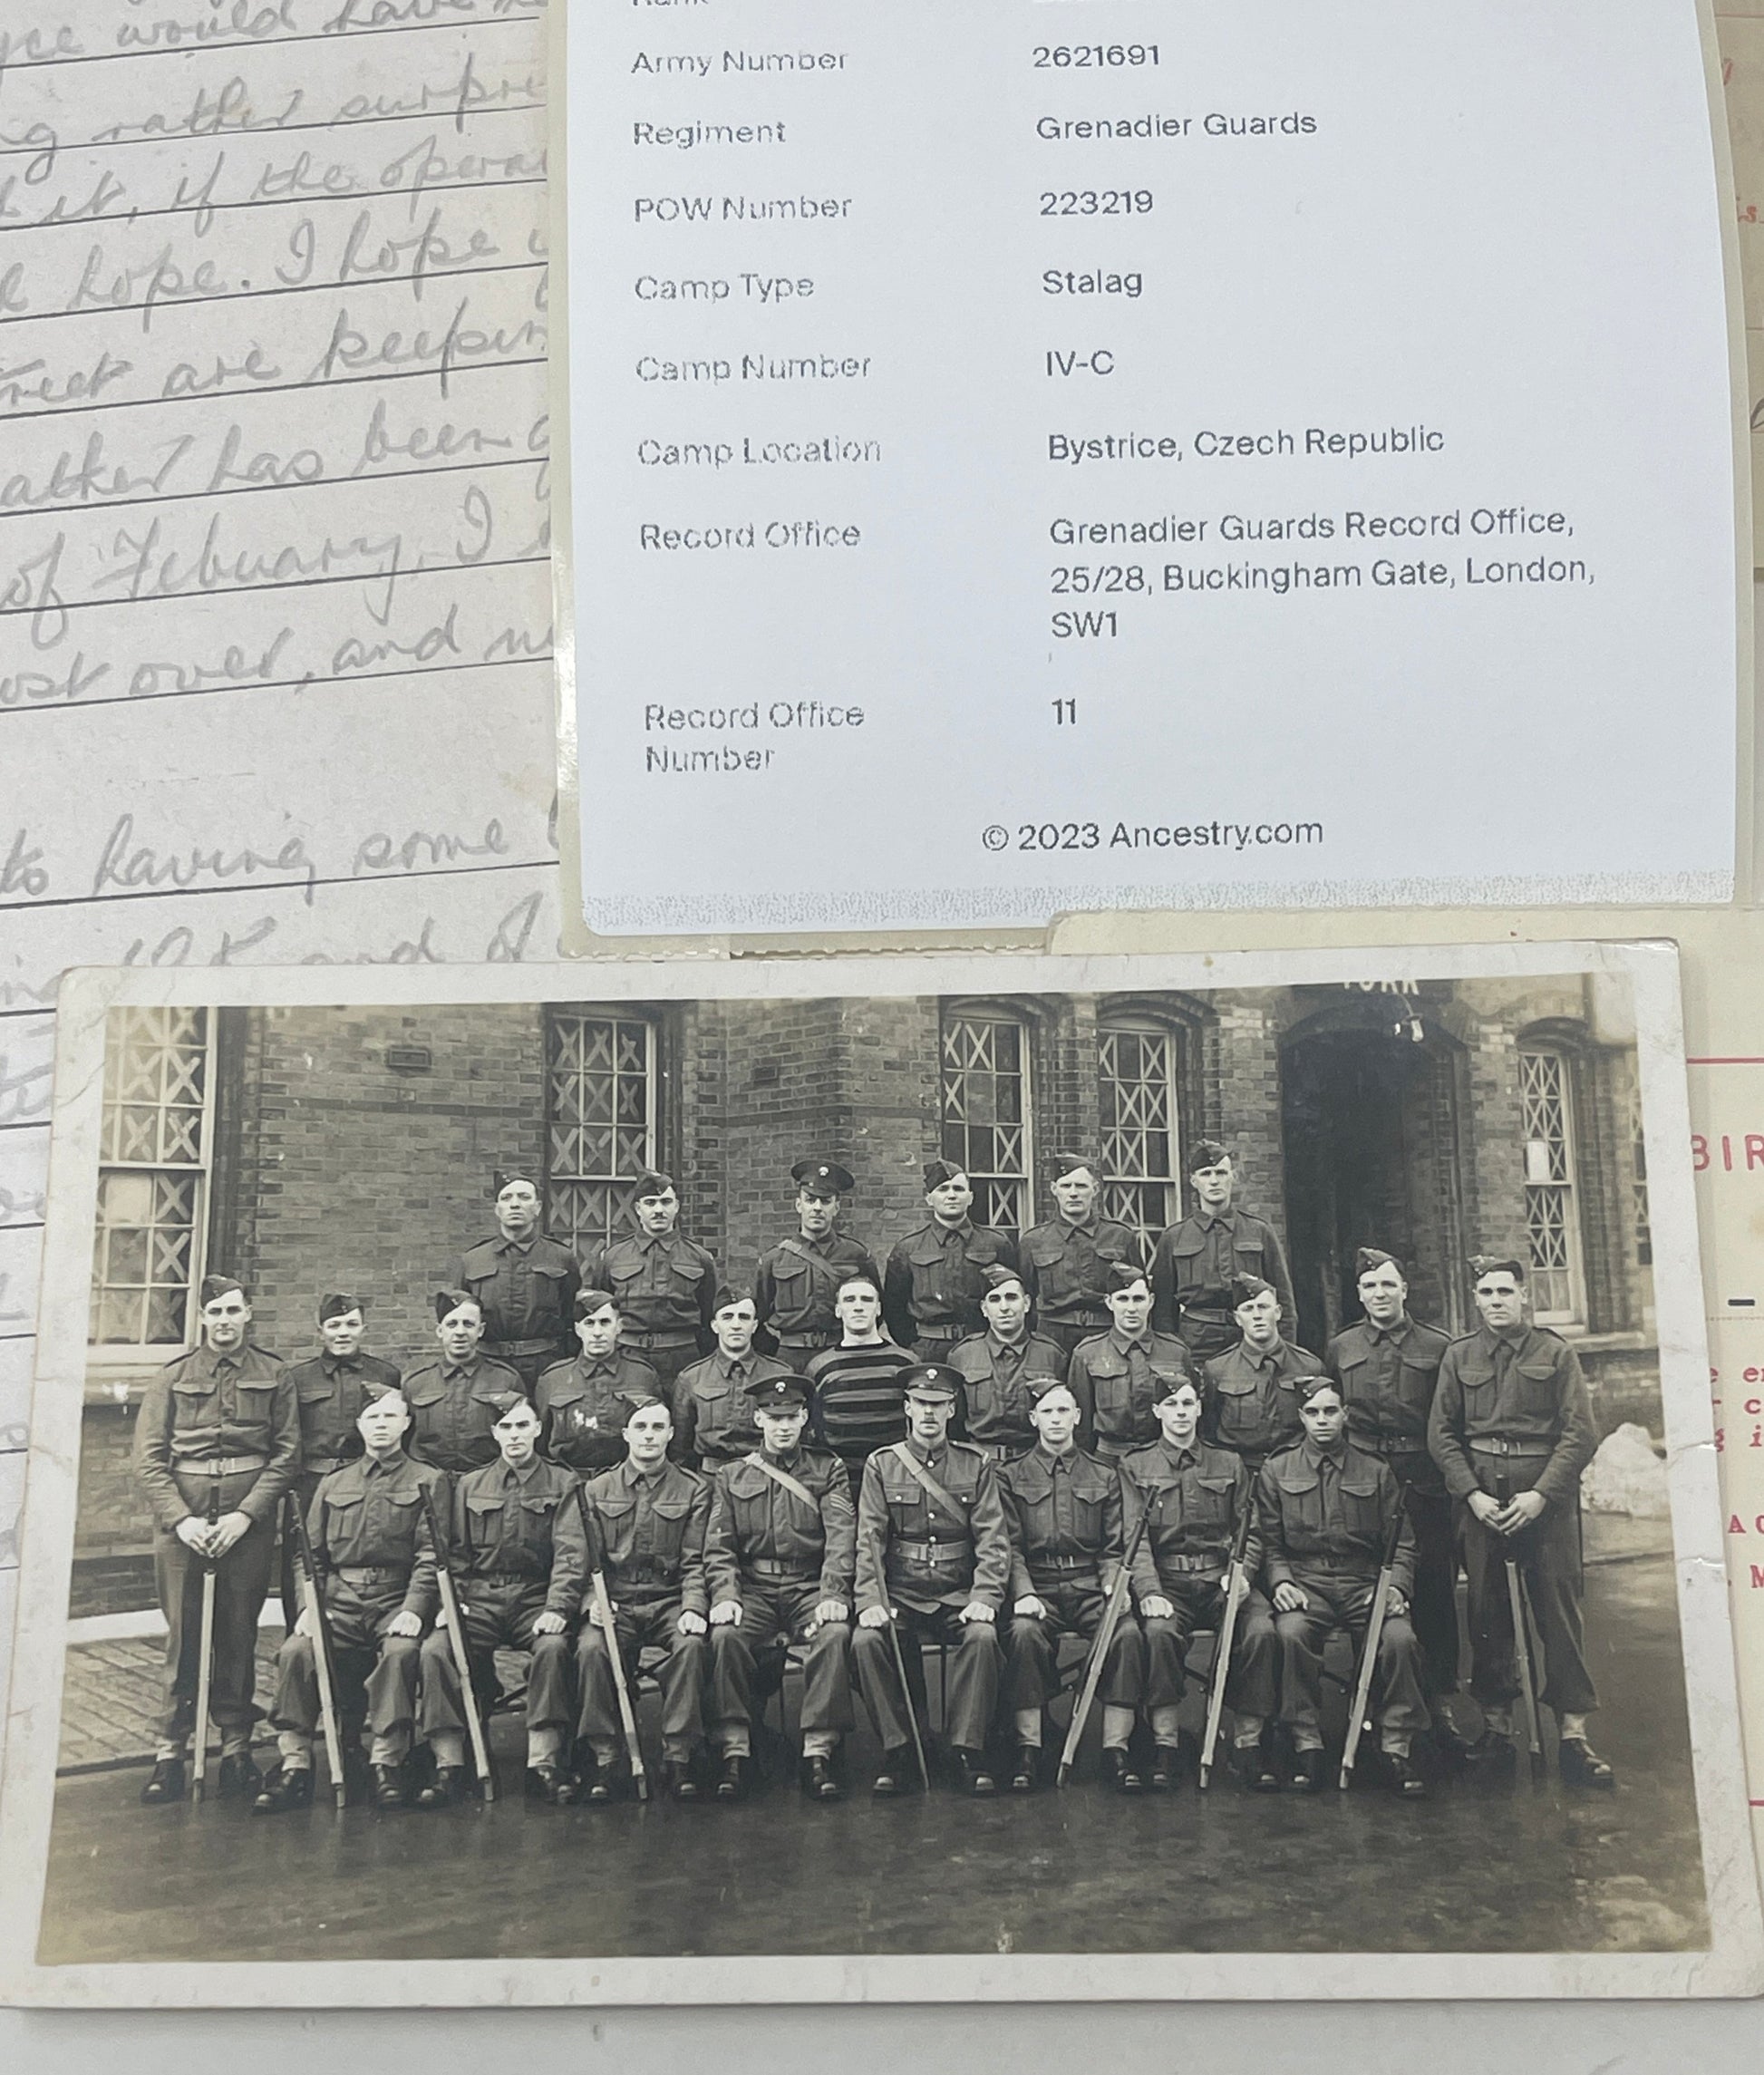 would have
rather surpri
it, if the opera
hope. I hope
are keepin
has been
of Febuary, I
over, and
to having some
and of
Army Number 2621691
Regiment Grenadier Guards
POW Number 223219
Camp Type Stalag
Camp Number IV-C
Camp Location Bystrice, Czech Republic
Record Office Grenadier Guards Record Office,
25/28, Buckingham Gate, London,
SW1
Record Office 11
Number
© 2023 Ancestry.com
BIR